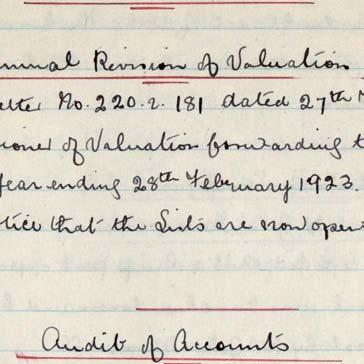 nnual Revision of Valuation
etter No. 220.2.181 dated 27th
ioner of Valuation forwarding t
Year ending 28th February 1923.
tice that the Lists are now open
Audit of Accounts